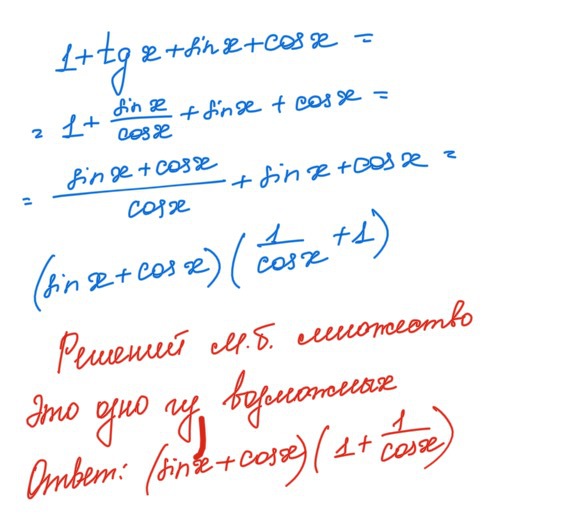 1 + tg x + sin x + cos x =
= 1 + sin x / cos x + sin x + cos x =
= (sin x + cos x) / cos x + sin x + cos x =
(sin x + cos x) (1 / cos x + 1)
Решений м.б. множество
Это одно из возможных
Ответ: (sin x + cos x) (1 + 1 / cos x)